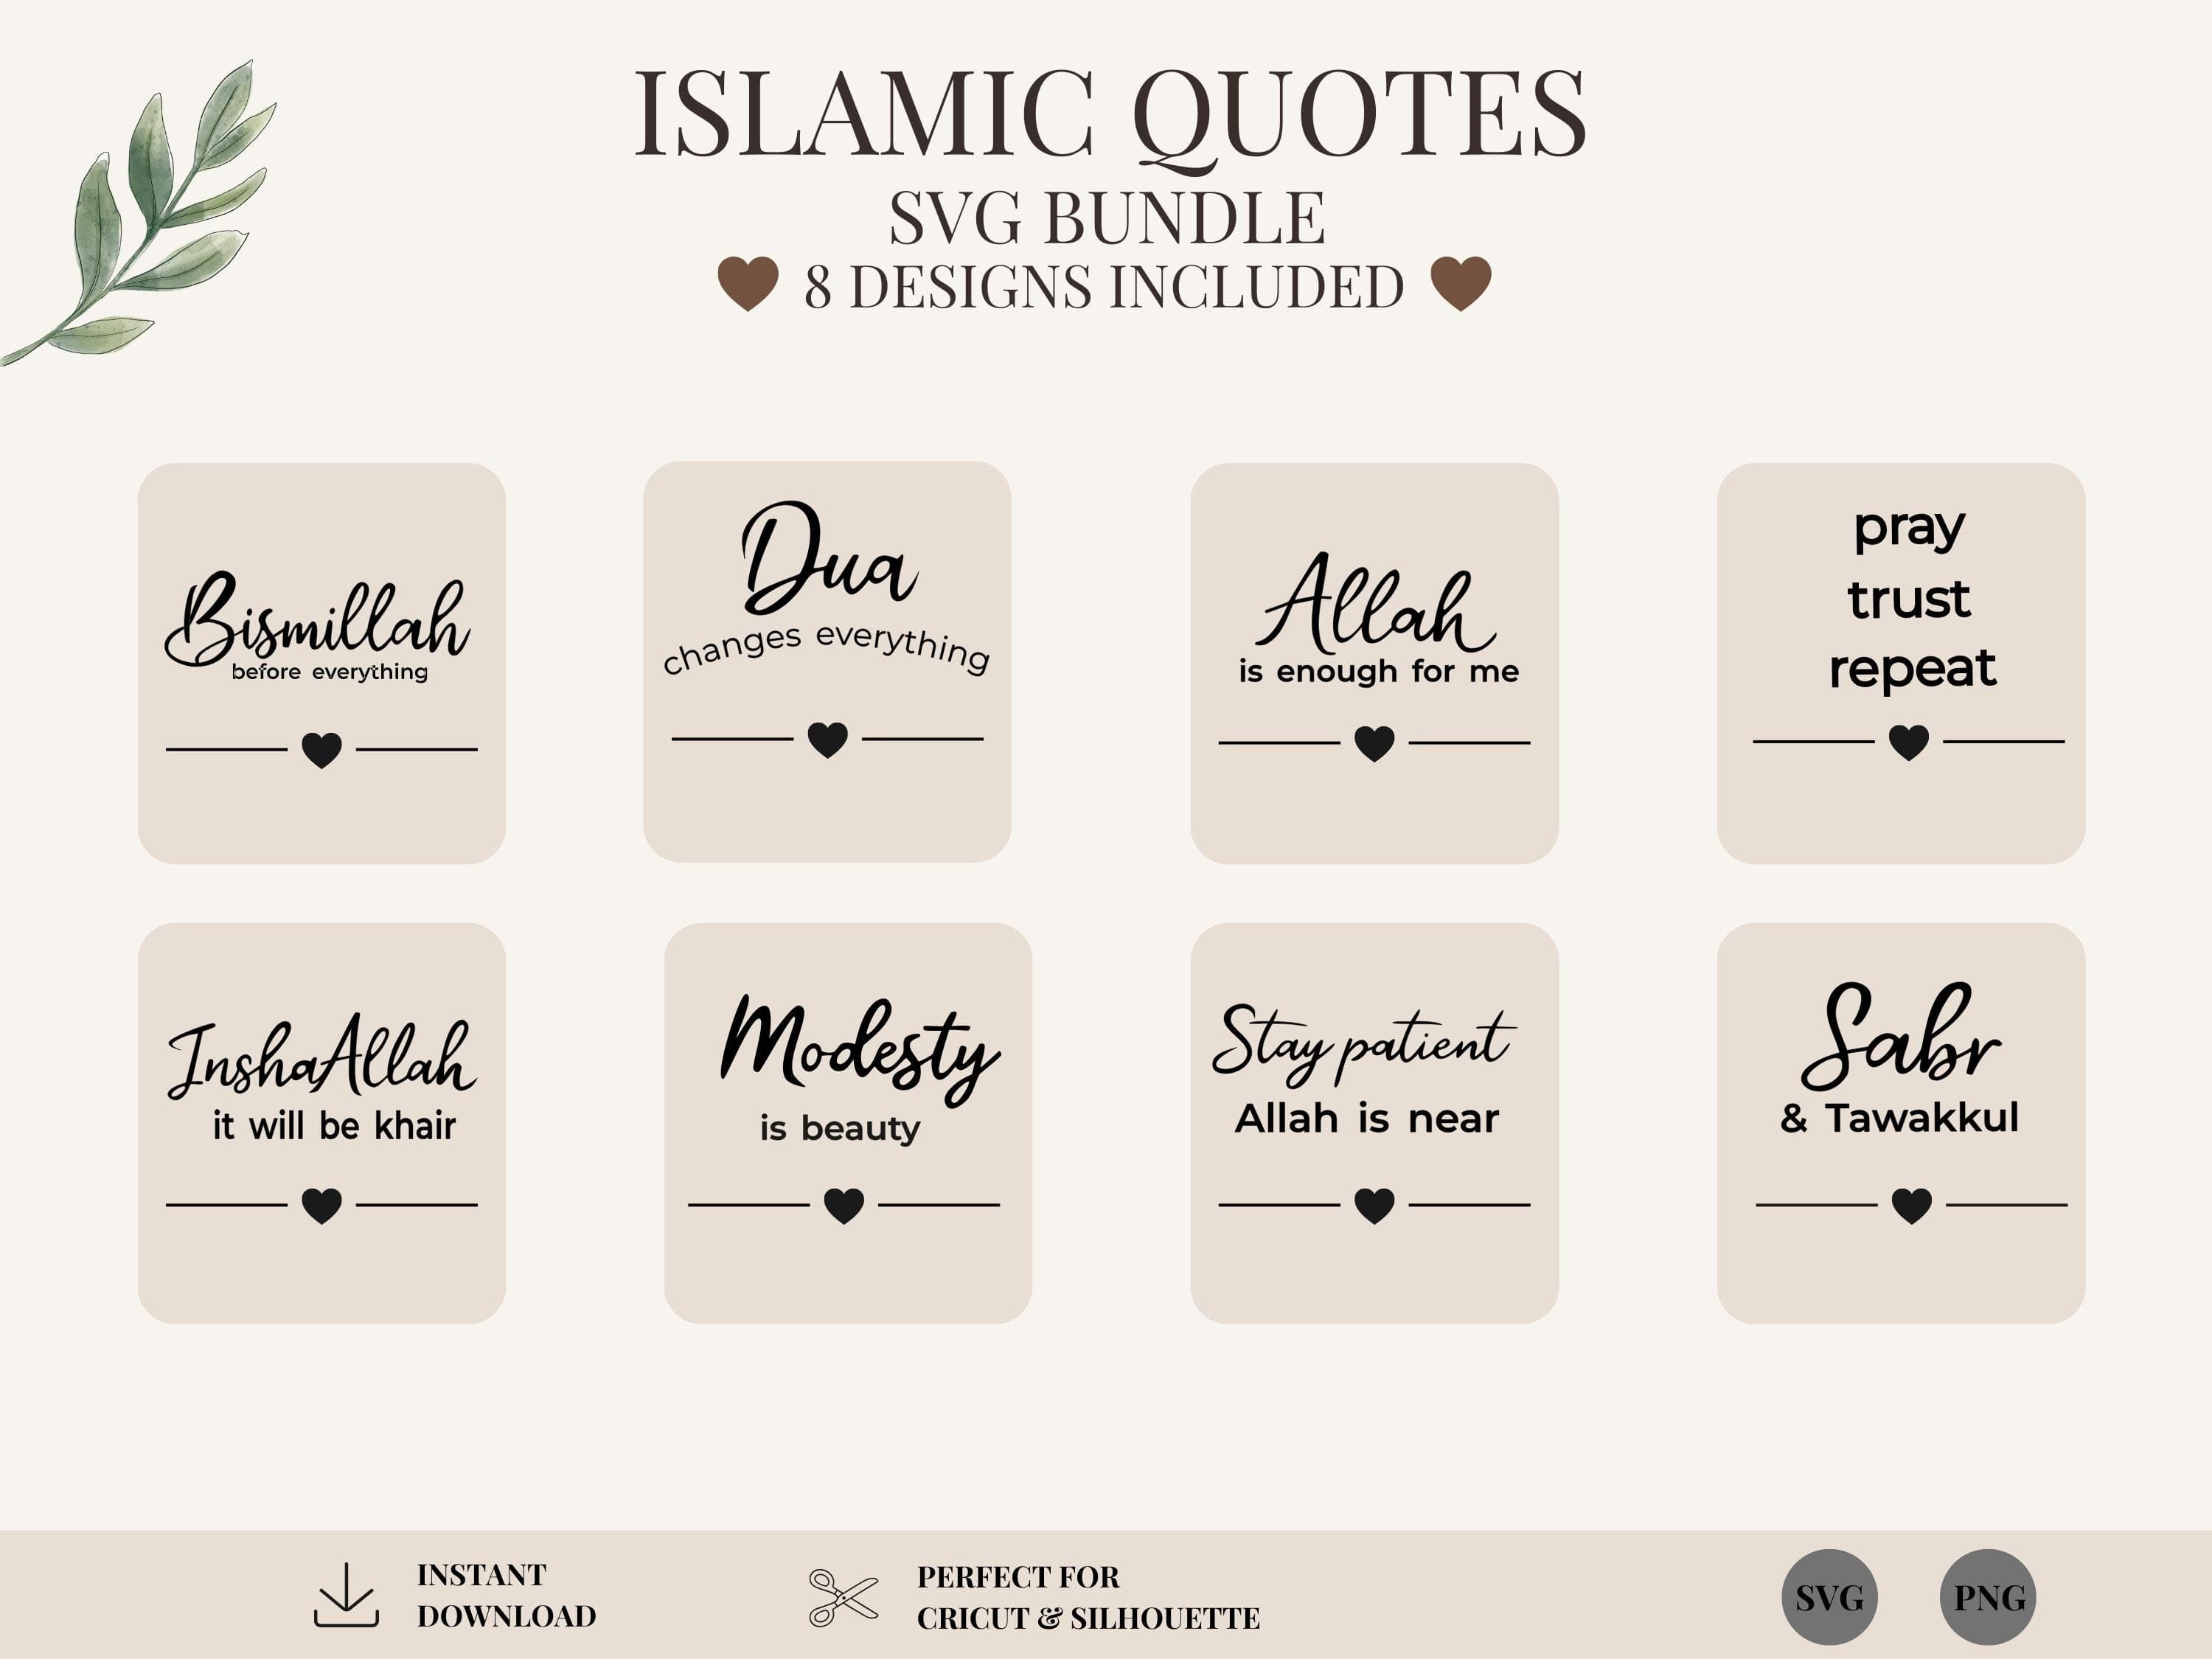 ISLAMIC QUOTES
SVG BUNDLE
8 DESIGNS INCLUDED
Bismillah
before everything
Dua
changes everything
Allah
is enough for me
pray
trust
repeat
InshaAllah
it will be khair
Modesty
is beauty
Stay patient
Allah is near
Sabr
& Tawakkul
INSTANT
DOWNLOAD
PERFECT FOR
CRICUT & SILHOUETTE
SVG
PNG